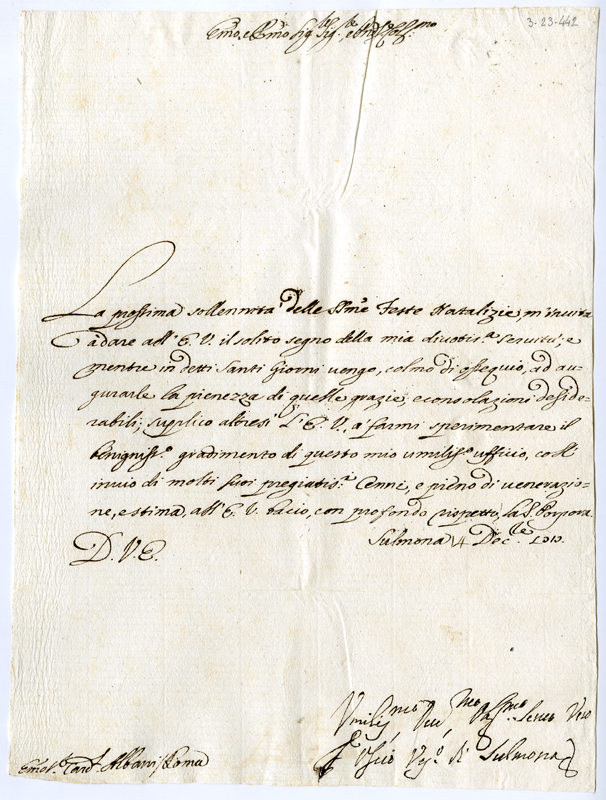 3-23-442
Em̃o, e Rm̃o Sig.re Sig.re, e
La prossima sollennità delle SS.me Feste Natalizie, m'invita
a dare all' E. V. il solito segno della mia divotis.a Servitù; e
mentre in detti Santi Giorni vengo, colmo di ossequio, ad au-
gurarle la pienezza di quelle grazie, e consolazioni deside-
rabili; supplico altresì l' E. V., a farmi sperimentare il
benignis.o gradimento di questo mio umilis.o ufficio, coll'
invio di molti suoi pregiatis.i Cenni, e pieno di venerazio-
ne, e stima, all' E. V. bacio, con profondo rispetto, la S. Porpora.
D. V. E.
Sulmona 4 Dec.bre
Umiliss.mo Dev.mo
Vesc.o di Sulmona
Em̃o S.r Card. Albani Roma